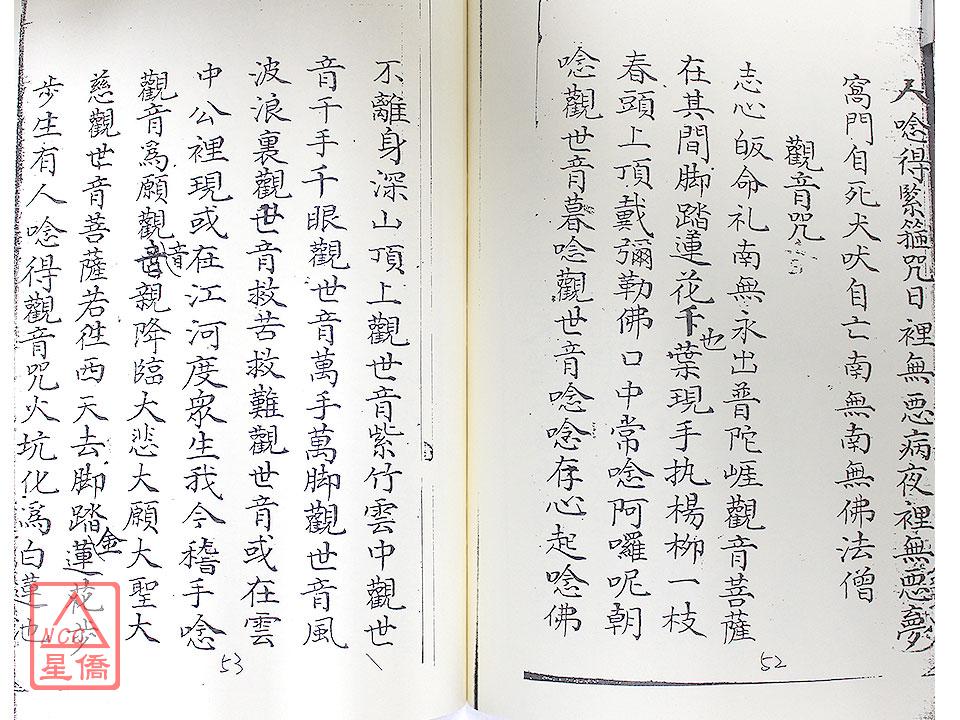 人唸得緊箍咒日裡無惡病夜裡無惡夢
窩門自死犬吠自亡南無南無佛法僧
觀音咒
志心皈命礼南無永出普陀崕觀音菩薩
在其間脚踏蓮花千葉現手执楊柳一枝
也
春頭上頂戴彌勒佛口中常唸阿囉呢朝
唸觀世音暮唸觀世音唸唸存心起唸佛
52
不離身深山頂上觀世音紫竹雲中觀世
音千手千眼觀世音萬手萬脚觀世音風
波浪裏觀世音救苦救難觀世音或在雲
中公裡現或在江河度眾生我今稽手唸
觀音爲願觀音親降臨大悲大願大聖大
慈觀世音菩薩若徃西天去脚踏蓮花步
金
步生有人唸得觀音咒火坑化爲白蓮也
53
NCC
星僑